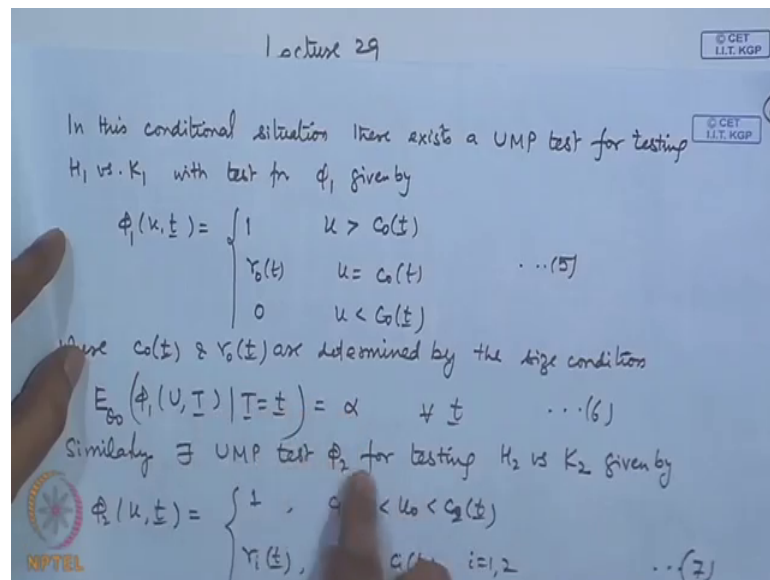 Lecture 29
© CET
I.I.T. KGP
© CET
I.I.T. KGP
In this conditional situation there exists a UMP test for testing
H₁ vs. K₁ with test fn φ₁ given by
φ₁(u, t) = { 1 u > c₀(t)
γ₀(t) u = c₀(t) ...(5)
0 u < c₀(t)
c₀(t) & γ₀(t) are determined by the size condition
E_θ₀(φ₁(U, T) | T = t) = α ∀ t ...(6)
Similarly ∃ UMP test φ₂ for testing H₂ vs K₂ given by
φ₂(u, t) = { 1, < u₀ < c₂(t)
γᵢ(t), i=1,2 ...(7)
NPTEL